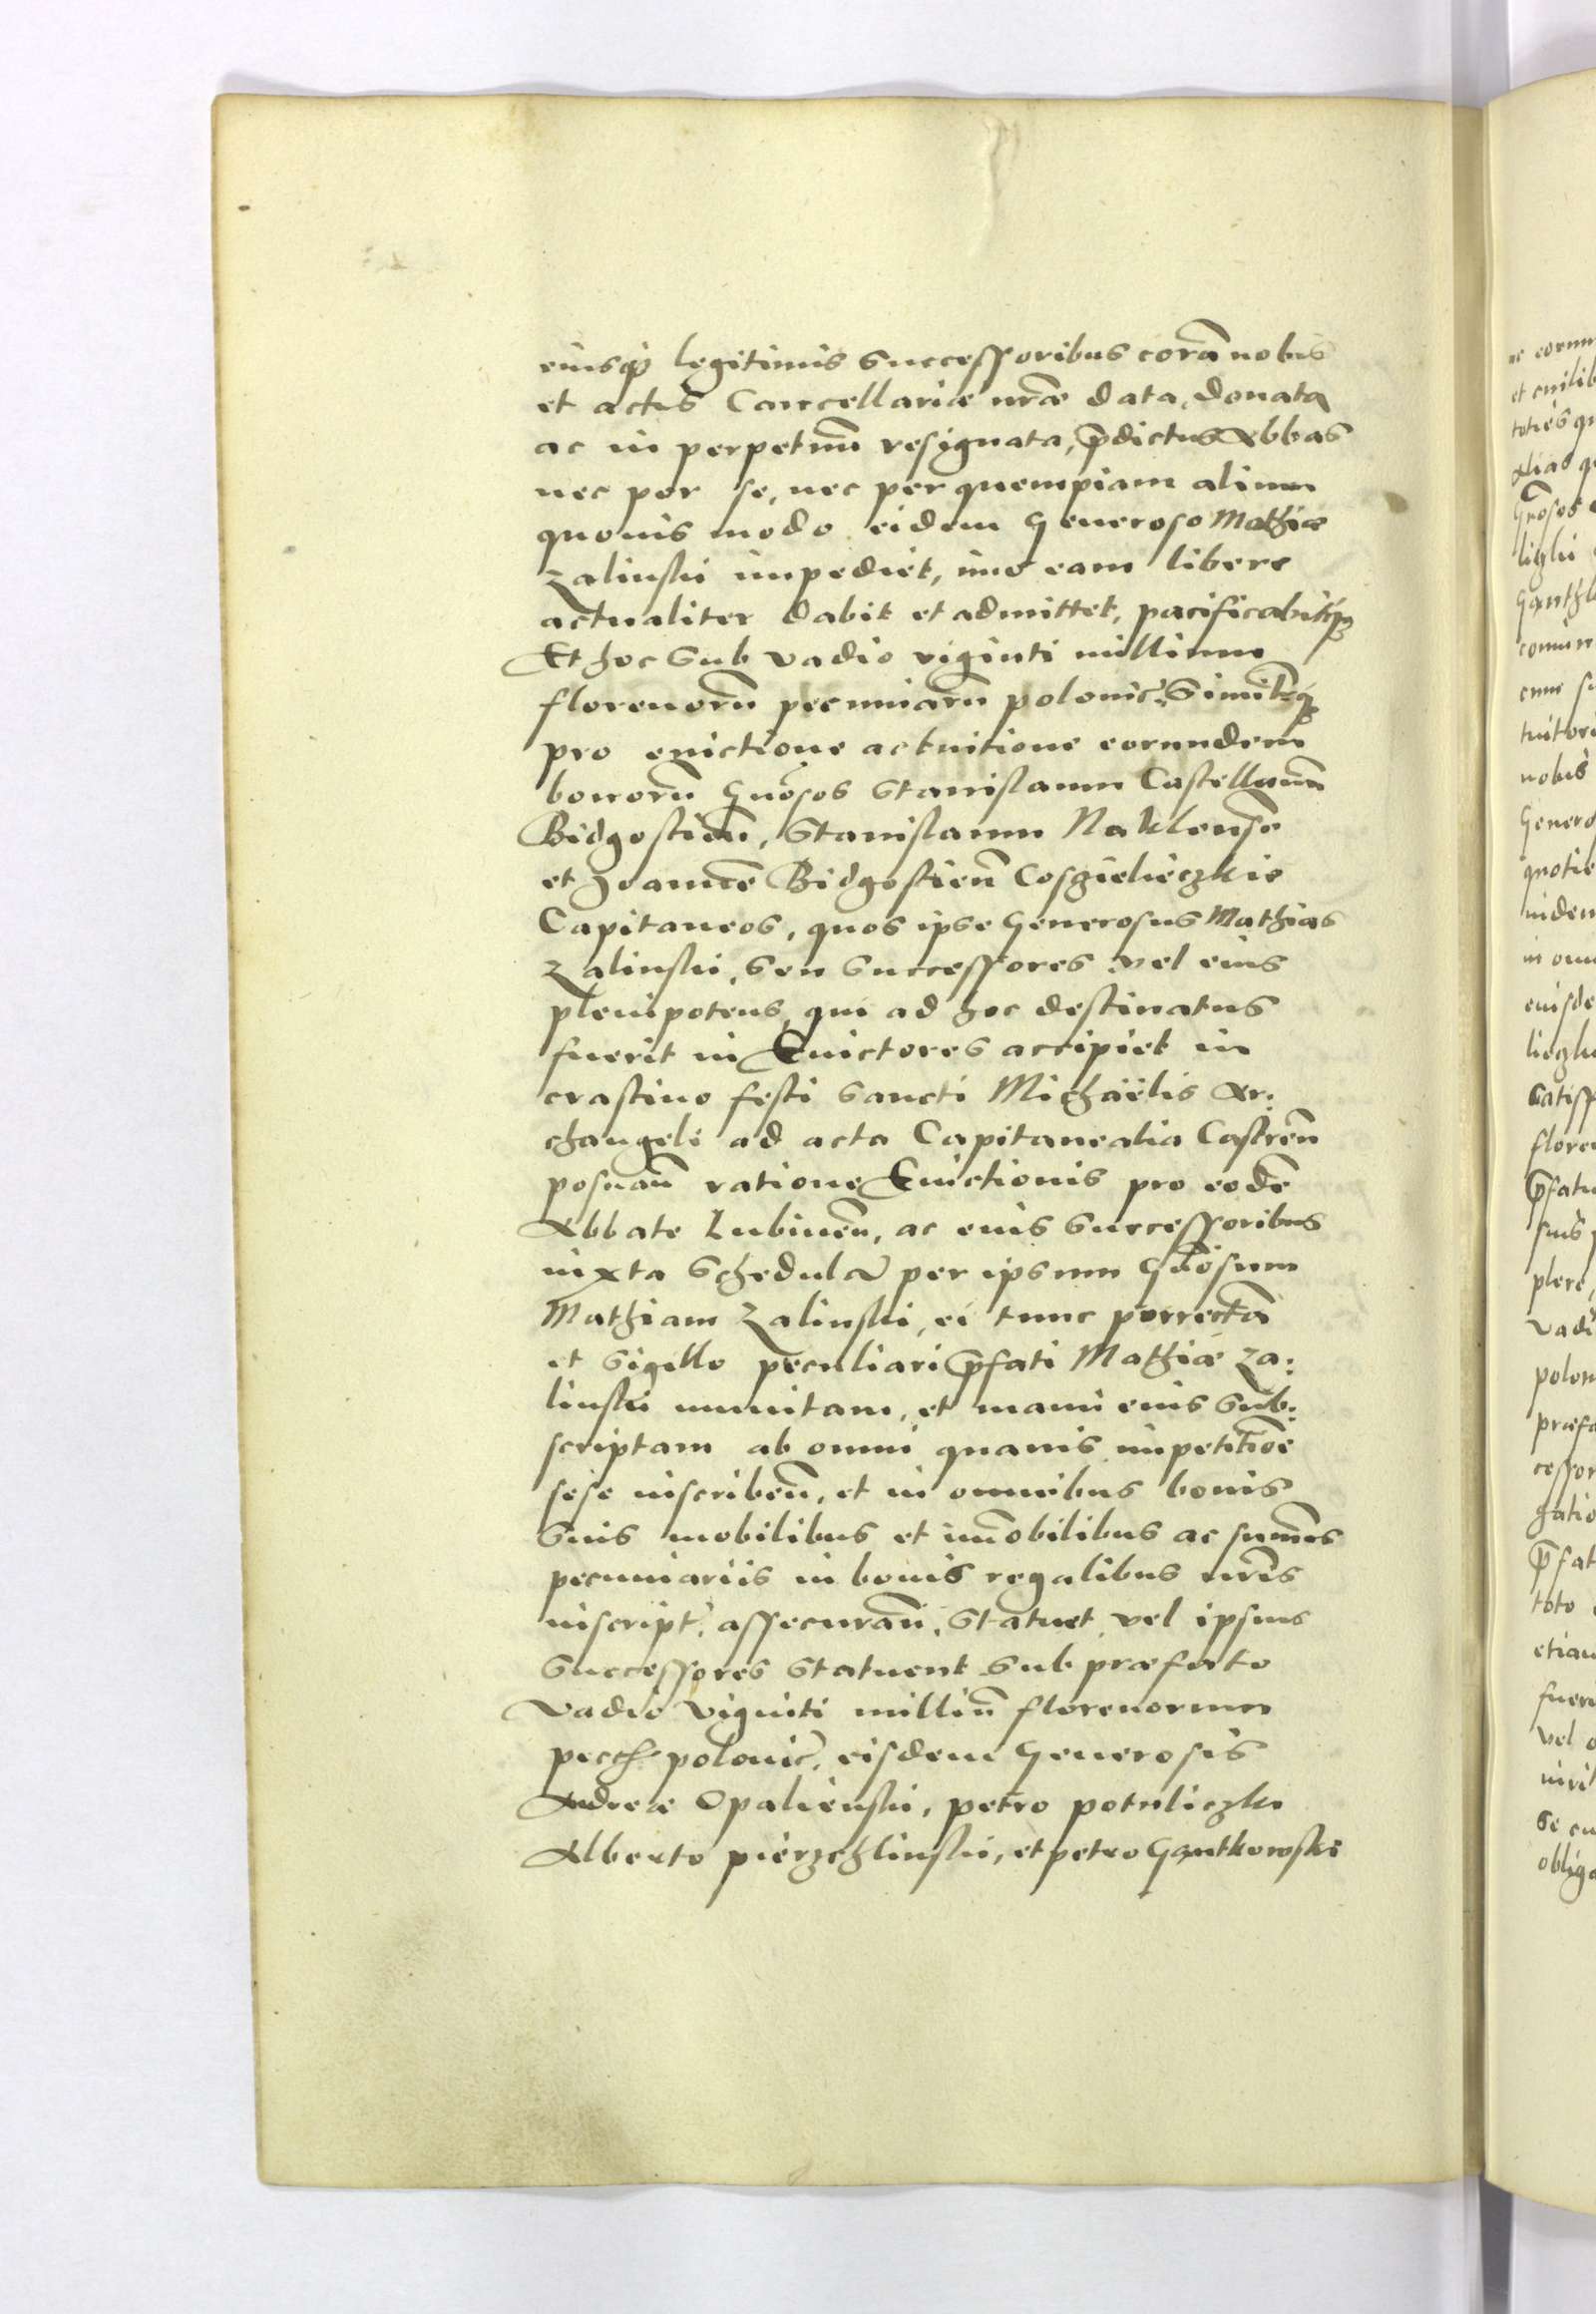 eiusq́ꝫ legitimis successoribus corã nobis
et actis Cancellariæ nr̃æ data, donata
ac in perpetuũ resignata, p̃dictus Abbas
nec per se, nec per quempiam alium
quouis modo eidem Generoso Mathiæ
Zalinski impediet, imo eam libere
actualiter dabit et admittet, pacificabitq́ꝫ
Et hoc sub vadio viginti millium
florenorũ pecuniarũ polonic̃. Similiterq́ꝫ
pro euictione ac tuitione eorundem
bonorũ Gñosos Stanislaum Castellanũ
Bidgostieñ, Stanislaum Naklense
et Joannẽ Bidgostieñ Cosczielieczkie
Capitaneos, quos ipse Generosus Mathias
Zalinski, seu successores vel eius
plenipotens, qui ad hoc destinatus
fuerit in Euictores accipiet in
crastino festi Sancti Michaëlis Ar:
changeli ad acta Capitanealia Castreñ
posnañ ratione Euictionis pro eodẽ
Abbate Lubineñ, ac eius successoribus
iuxta schedulã per ipsum Gñosum
Mathiam Zalinski, ei tunc porrectã
et sigillo peculiari p̃fati Mathiæ Za:
linski munitam, et manu eius sub:
scriptam ab omni quauis impetitiõe
sese inscribeñ, et in omnibus bonis
suis mobilibus et im̃obilibus ac sum̃is
pecuniariis in bonis regalibus nr̃is
inscript̃. assecurañ, statuet, vel ipsius
successores statuent sub præfato
vadio viginti milliũ florenorum
pecch̃ polonic̃, eisdem Generosis
Andreæ Opalienski, petro potuliczki
Alberto pierzchlinski, et petro Gantkowski